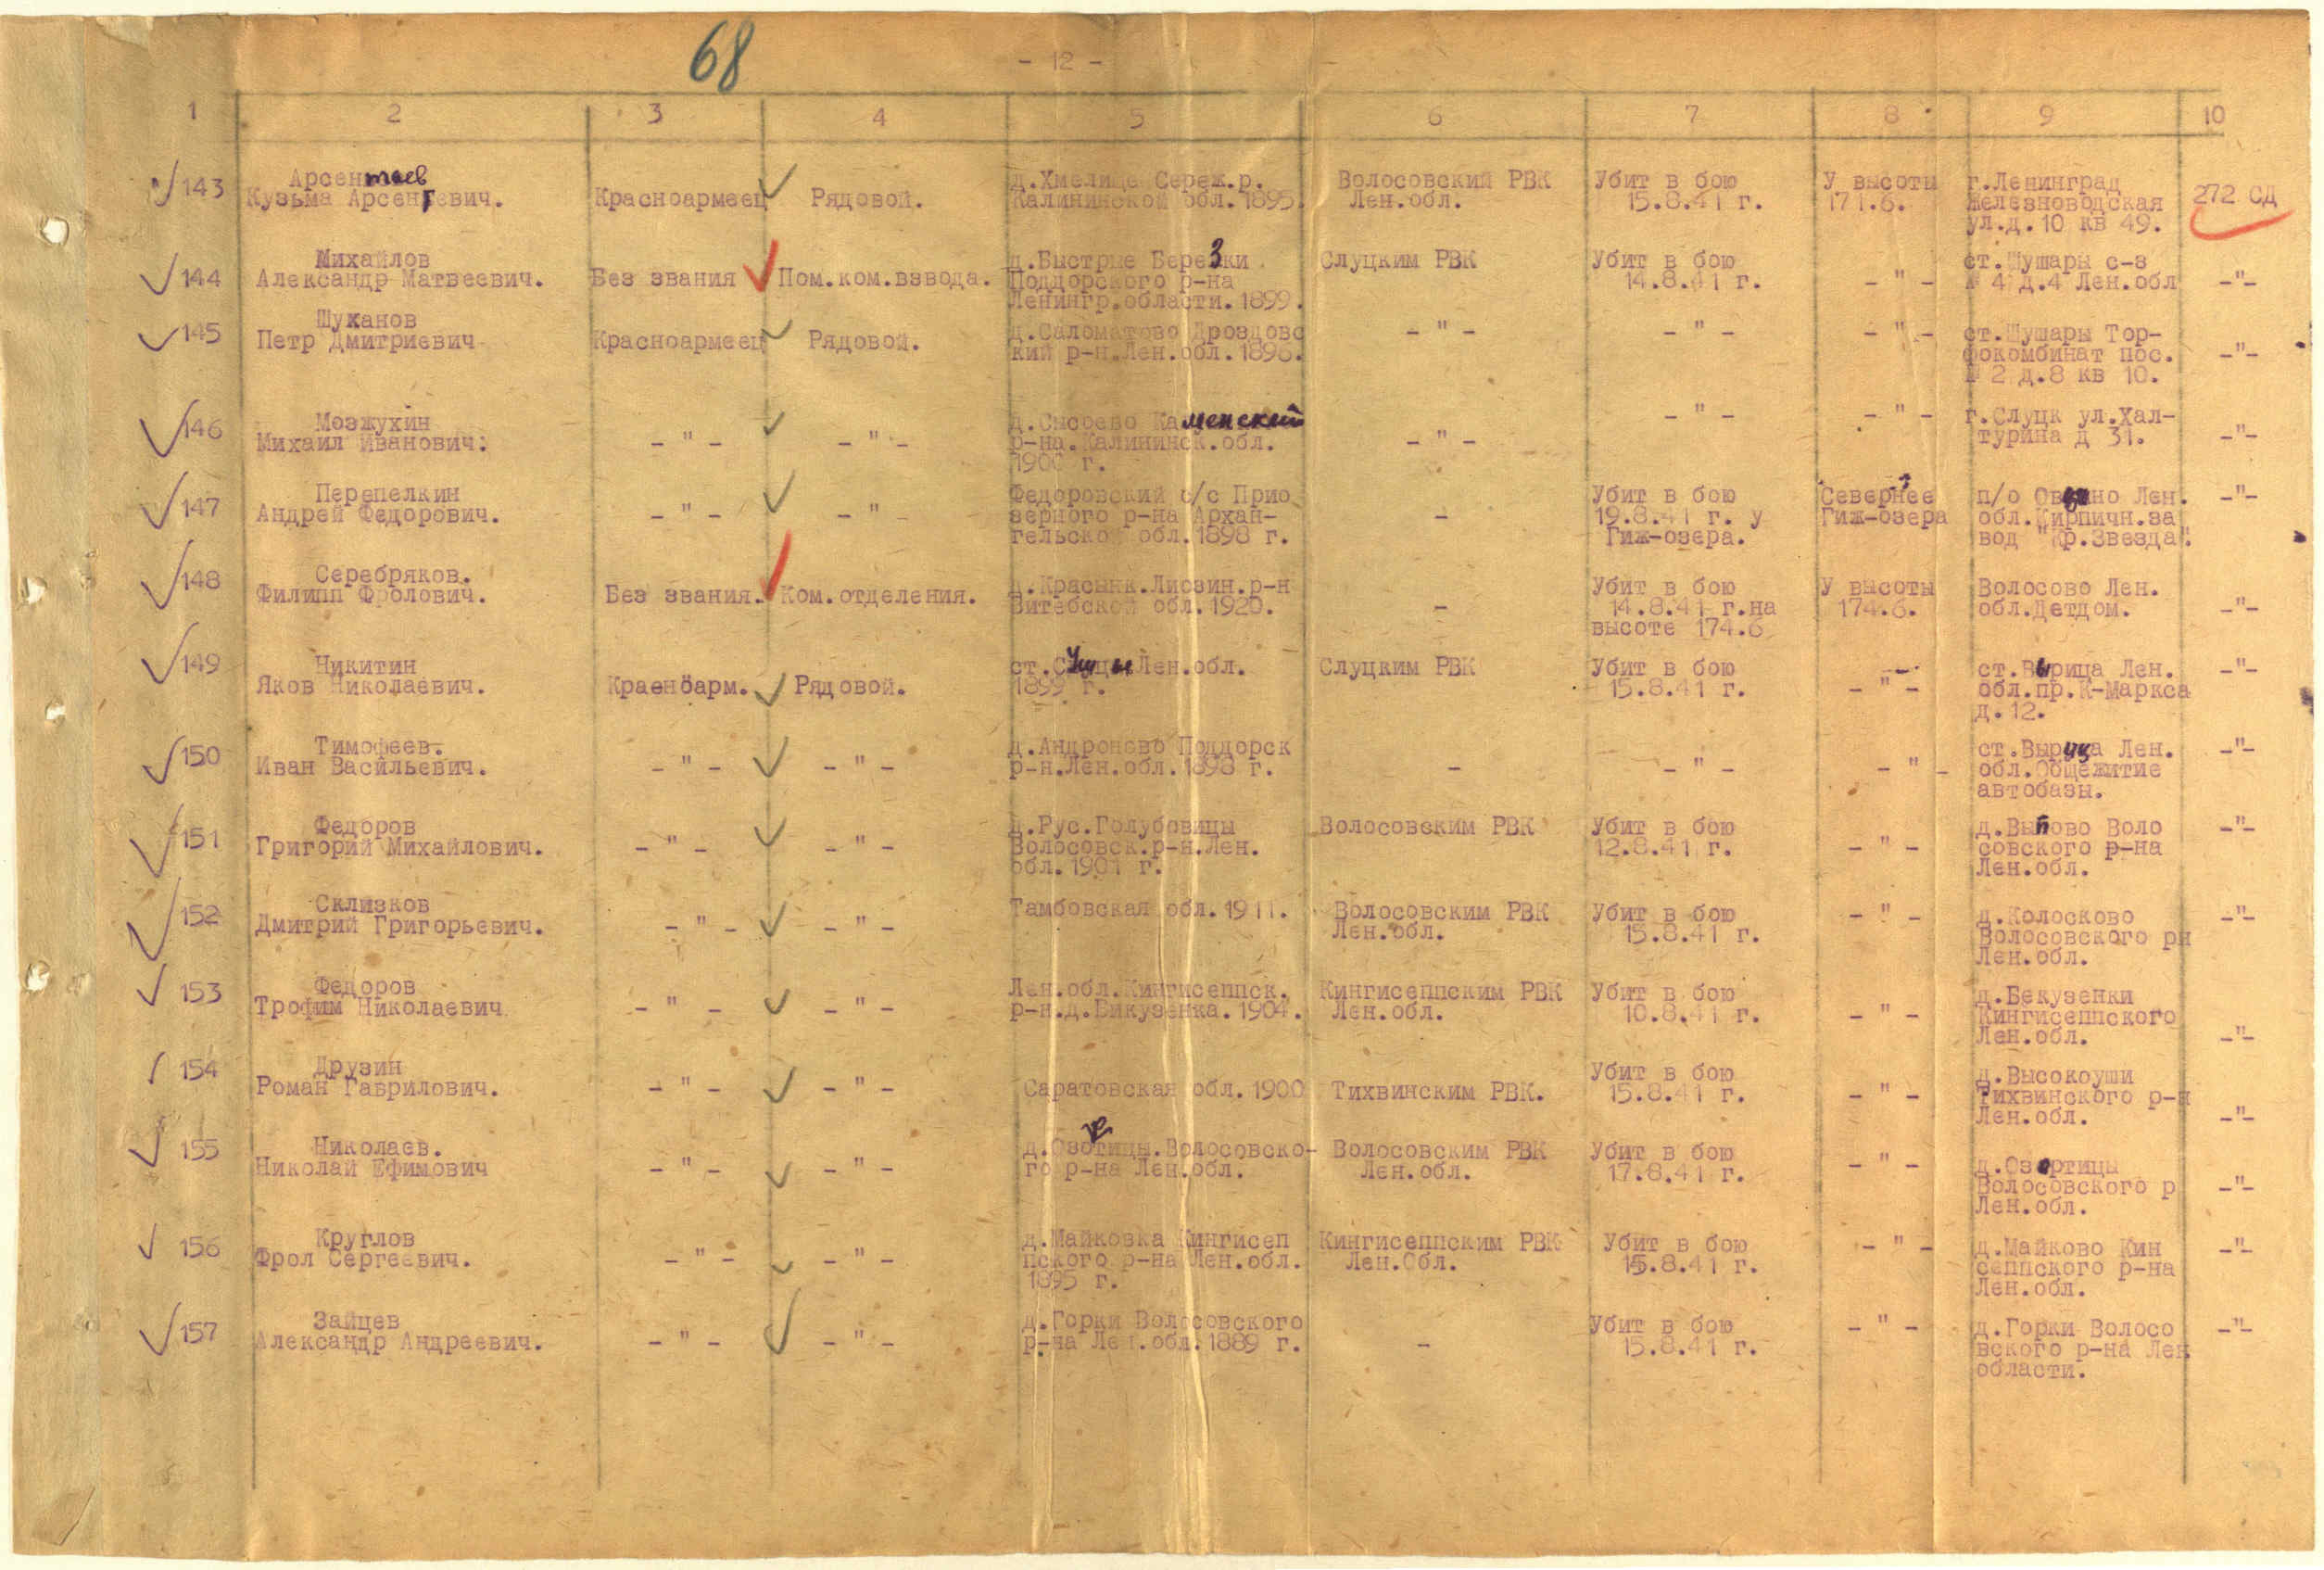 68
- 12 -
1 2 3 4 5 6 7 8 9 10
143 Арсентьев Красноармеец Рядовой. д.Хмелище Сереж.р. Волосовский РВК Убит в бою У высоты г.Ленинград 272 СД
Кузьма Арсентевич. Калининской обл.1895. Лен.обл. 15.8.41 г. 171.6. Железноводская
ул.д.10 кв 49.
144 Михайлов д.Быстрые Березки Слуцким РВК Убит в бою ст.Шушары с-з
Александр Матвеевич. Без звания Пом.ком.взвода. Поддорского р-на 14.8.41 г. - " - № 4 д.4 Лен.обл -"-
Ленингр.области.1899.
145 Шуканов д.Саломатово Дроздовс - " - - " - - " - ст.Шушары Тор-
Петр Дмитриевич Красноармеец Рядовой. кий р-н.Лен.обл.1898. фокомбинат пос. -"-
№ 2 д.8 кв 10.
146 Мозжухин д.Сысоево Каменский - " - - " - г.Слуцк ул.Хал-
Михаил Иванович. - " - - " - р-на.Калининск.обл. - " - турина д 31. -"-
1900 г.
147 Перепелкин Федоровский с/с Прио Убит в бою Севернее п/о Овцино Лен. -"-
Андрей Федорович. - " - - " - зерного р-на Архан- - 19.8.41 г. у Гиж-озера обл.Кирпичн.за
гельской обл.1898 г. Гиж-озера. вод "Кр.Звезда".
148 Серебряков. д.Красынк.Лиозин.р-н Убит в бою У высоты Волосово Лен.
Филипп Фролович. Без звания. Ком.отделения. Витебской обл.1920. - 14.8.41 г.на 174.6. обл.Детдом. -"-
высоте 174.6
149 Никитин ст.Сущы Лен.обл. Слуцким РВК Убит в бою ст.Вырица Лен. -"-
Яков Николаевич. Красноарм. Рядовой. 1899 г. 15.8.41 г. - " - обл.пр.К-Маркса
д.12.
150 Тимофеев. д.Андроново Поддорск ст.Выруца Лен. -"-
Иван Васильевич. - " - - " - р-н.Лен.обл.1898 г. - - " - - " - обл.Общежитие
автобазы.
151 Федоров д.Рус.Голубовицы Волосовским РВК Убит в бою д.Выпово Воло -"-
Григорий Михайлович. - " - - " - Волосовск.р-н.Лен. 12.8.41 г. - " - совского р-на
обл.1901 г. Лен.обл.
152 Склизков Тамбовская обл.1911. Волосовским РВК Убит в бою - " - д.Колосково -"-
Дмитрий Григорьевич. - " - - " - Лен.обл. 15.8.41 г. Волосовского рн
Лен.обл.
153 Федоров Лен.обл.Кингисеппск. Кингисеппским РВК Убит в бою д.Бекузенки
Трофим Николаевич - " - - " - р-н.д.Бикузенка.1904. Лен.обл. 10.8.41 г. - " - Кингисеппского
Лен.обл. -"-
154 Друзин Убит в бою д.Высокоуши
Роман Гаврилович. - " - - " - Саратовская обл.1900 Тихвинским РВК. 15.8.41 г. - " - Тихвинского р-н
Лен.обл. -"-
155 Николаев. д.Озотицы.Волосовско- Волосовским РВК Убит в бою
Николай Ефимович - " - - " - го р-на Лен.обл. Лен.обл. 17.8.41 г. - " - д.Озертицы
Волосовского р -"-
Лен.обл.
156 Круглов д.Майковка Кингисеп Кингисеппским РВК Убит в бою - " - д.Майково Кин -"-
Фрол Сергеевич. - " - - " - пского р-на Лен.обл. Лен.Обл. 15.8.41 г. сеппского р-на
1895 г. Лен.обл.
157 Зайцев д.Горки Волосовского Убит в бою - " - д.Горки Волосо -"-
Александр Андреевич. - " - - " - р-на Лен.обл.1889 г. - 15.8.41 г. вского р-на Лен
области.